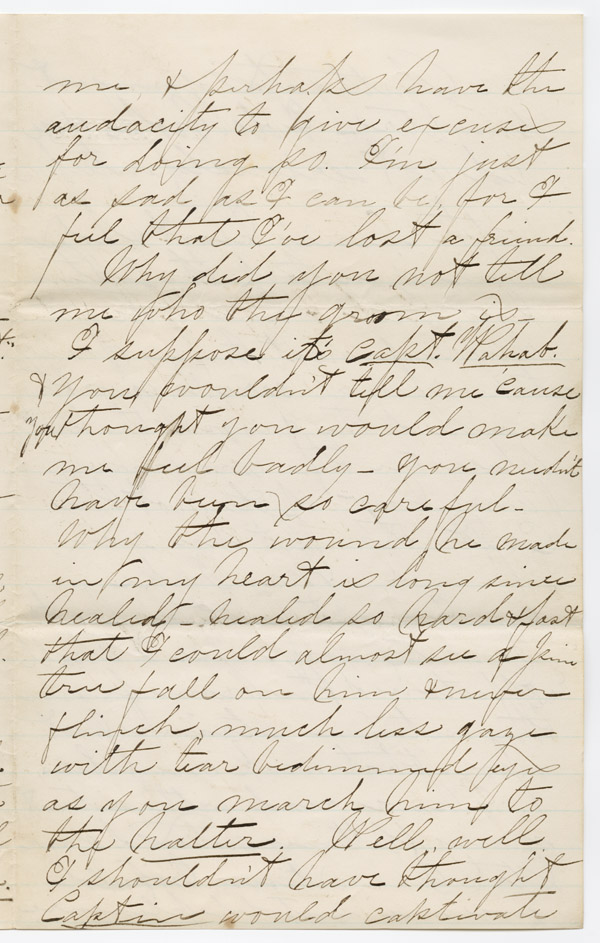 me, & perhaps have the
audacity to give excuses
for doing so. I'm just
as sad as I can be, for I
feel that I've lost a friend.
Why did you not tell
me who the groom is –
I suppose it's Capt. Wahab.
& you wouldn't tell me 'cause
you thought you would make
me feel badly – you needn't
have been so careful –
Why the wound he made
in my heart is long since
healed – healed so hard & fast
that I could almost see a pine
tree fall on him & never
flinch, much less gaze
with tear bedimmed eyes
as you march him to
the halter. Well, well
I shouldn't have thought
Captin would captivate